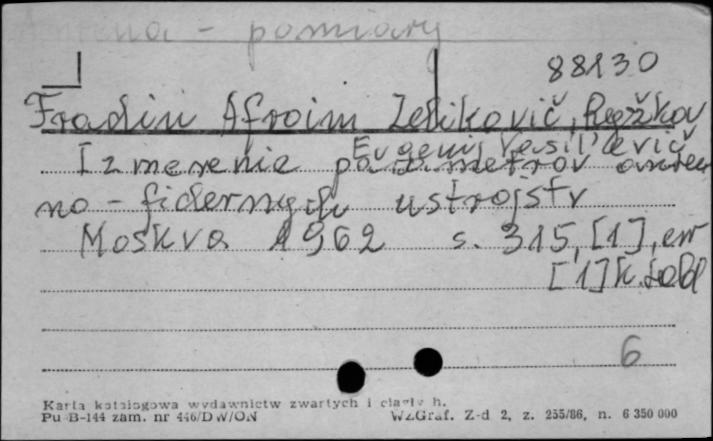 Antena - pomiary
88130
Fradin Afroim Zelikovič, Ryžkov
Evgenij Vasil'evič
Izmerenie parametrov anten
no-fidernych ustrojstv
Moskva 1962 s. 315, [1], err
[1] k. tabl
6
Karta katalogowa wydawnictw zwartych i ciągłych.
Pu B-144 zam. nr 446/DW/ON WZGraf. Z-d 2, z. 255/86, n. 6 350 000